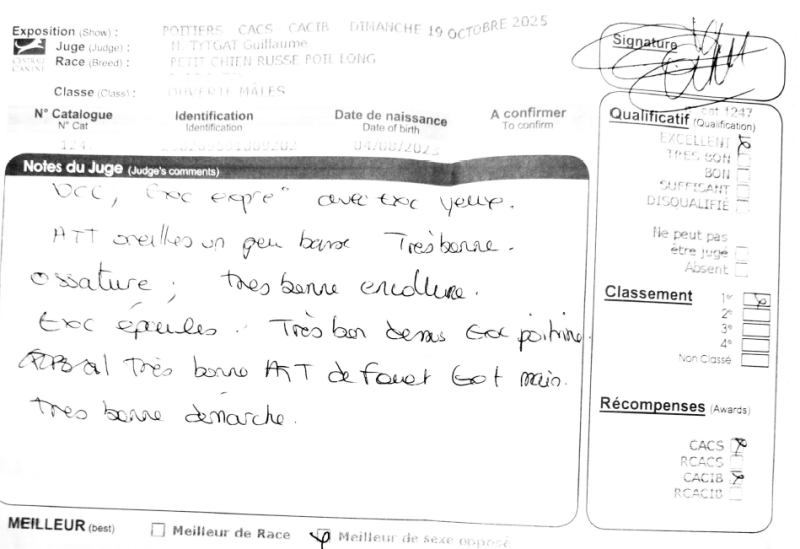 Exposition (Show) : POITIERS CACS CACIB DIMANCHE 19 OCTOBRE 2025
Juge (Judge) : M. TYTGAT Guillaume
CENTRALE CANINE
Race (Breed) : PETIT CHIEN RUSSE POIL LONG
Classe (Class) : OUVERTE MÂLES
N° Catalogue Identification Date de naissance A confirmer
N° Cat Identification Date of birth To confirm
04/08/2023
Notes du Juge (Judge's comments)
DCC, Exc expre° avec exc yeux.
ATT oreilles un peu basse Très bonne.
ossature, très bonne encolure.
Exc épaules. Très bon dessus Exc poitrine.
Très bonne ATT de fouet Got main.
très bonne démarche.
MEILLEUR (best) Meilleur de Race Meilleur de sexe opposé
Signature
cat 1247
Qualificatif (Qualification)
EXCELLENT
TRES BON
BON
SUFFISANT
DISQUALIFIÉ
Ne peut pas
être jugé
Absent
Classement 1°
2°
3°
4°
Non Classé
Récompenses (Awards)
CACS
RCACS
CACIB
RCACIB